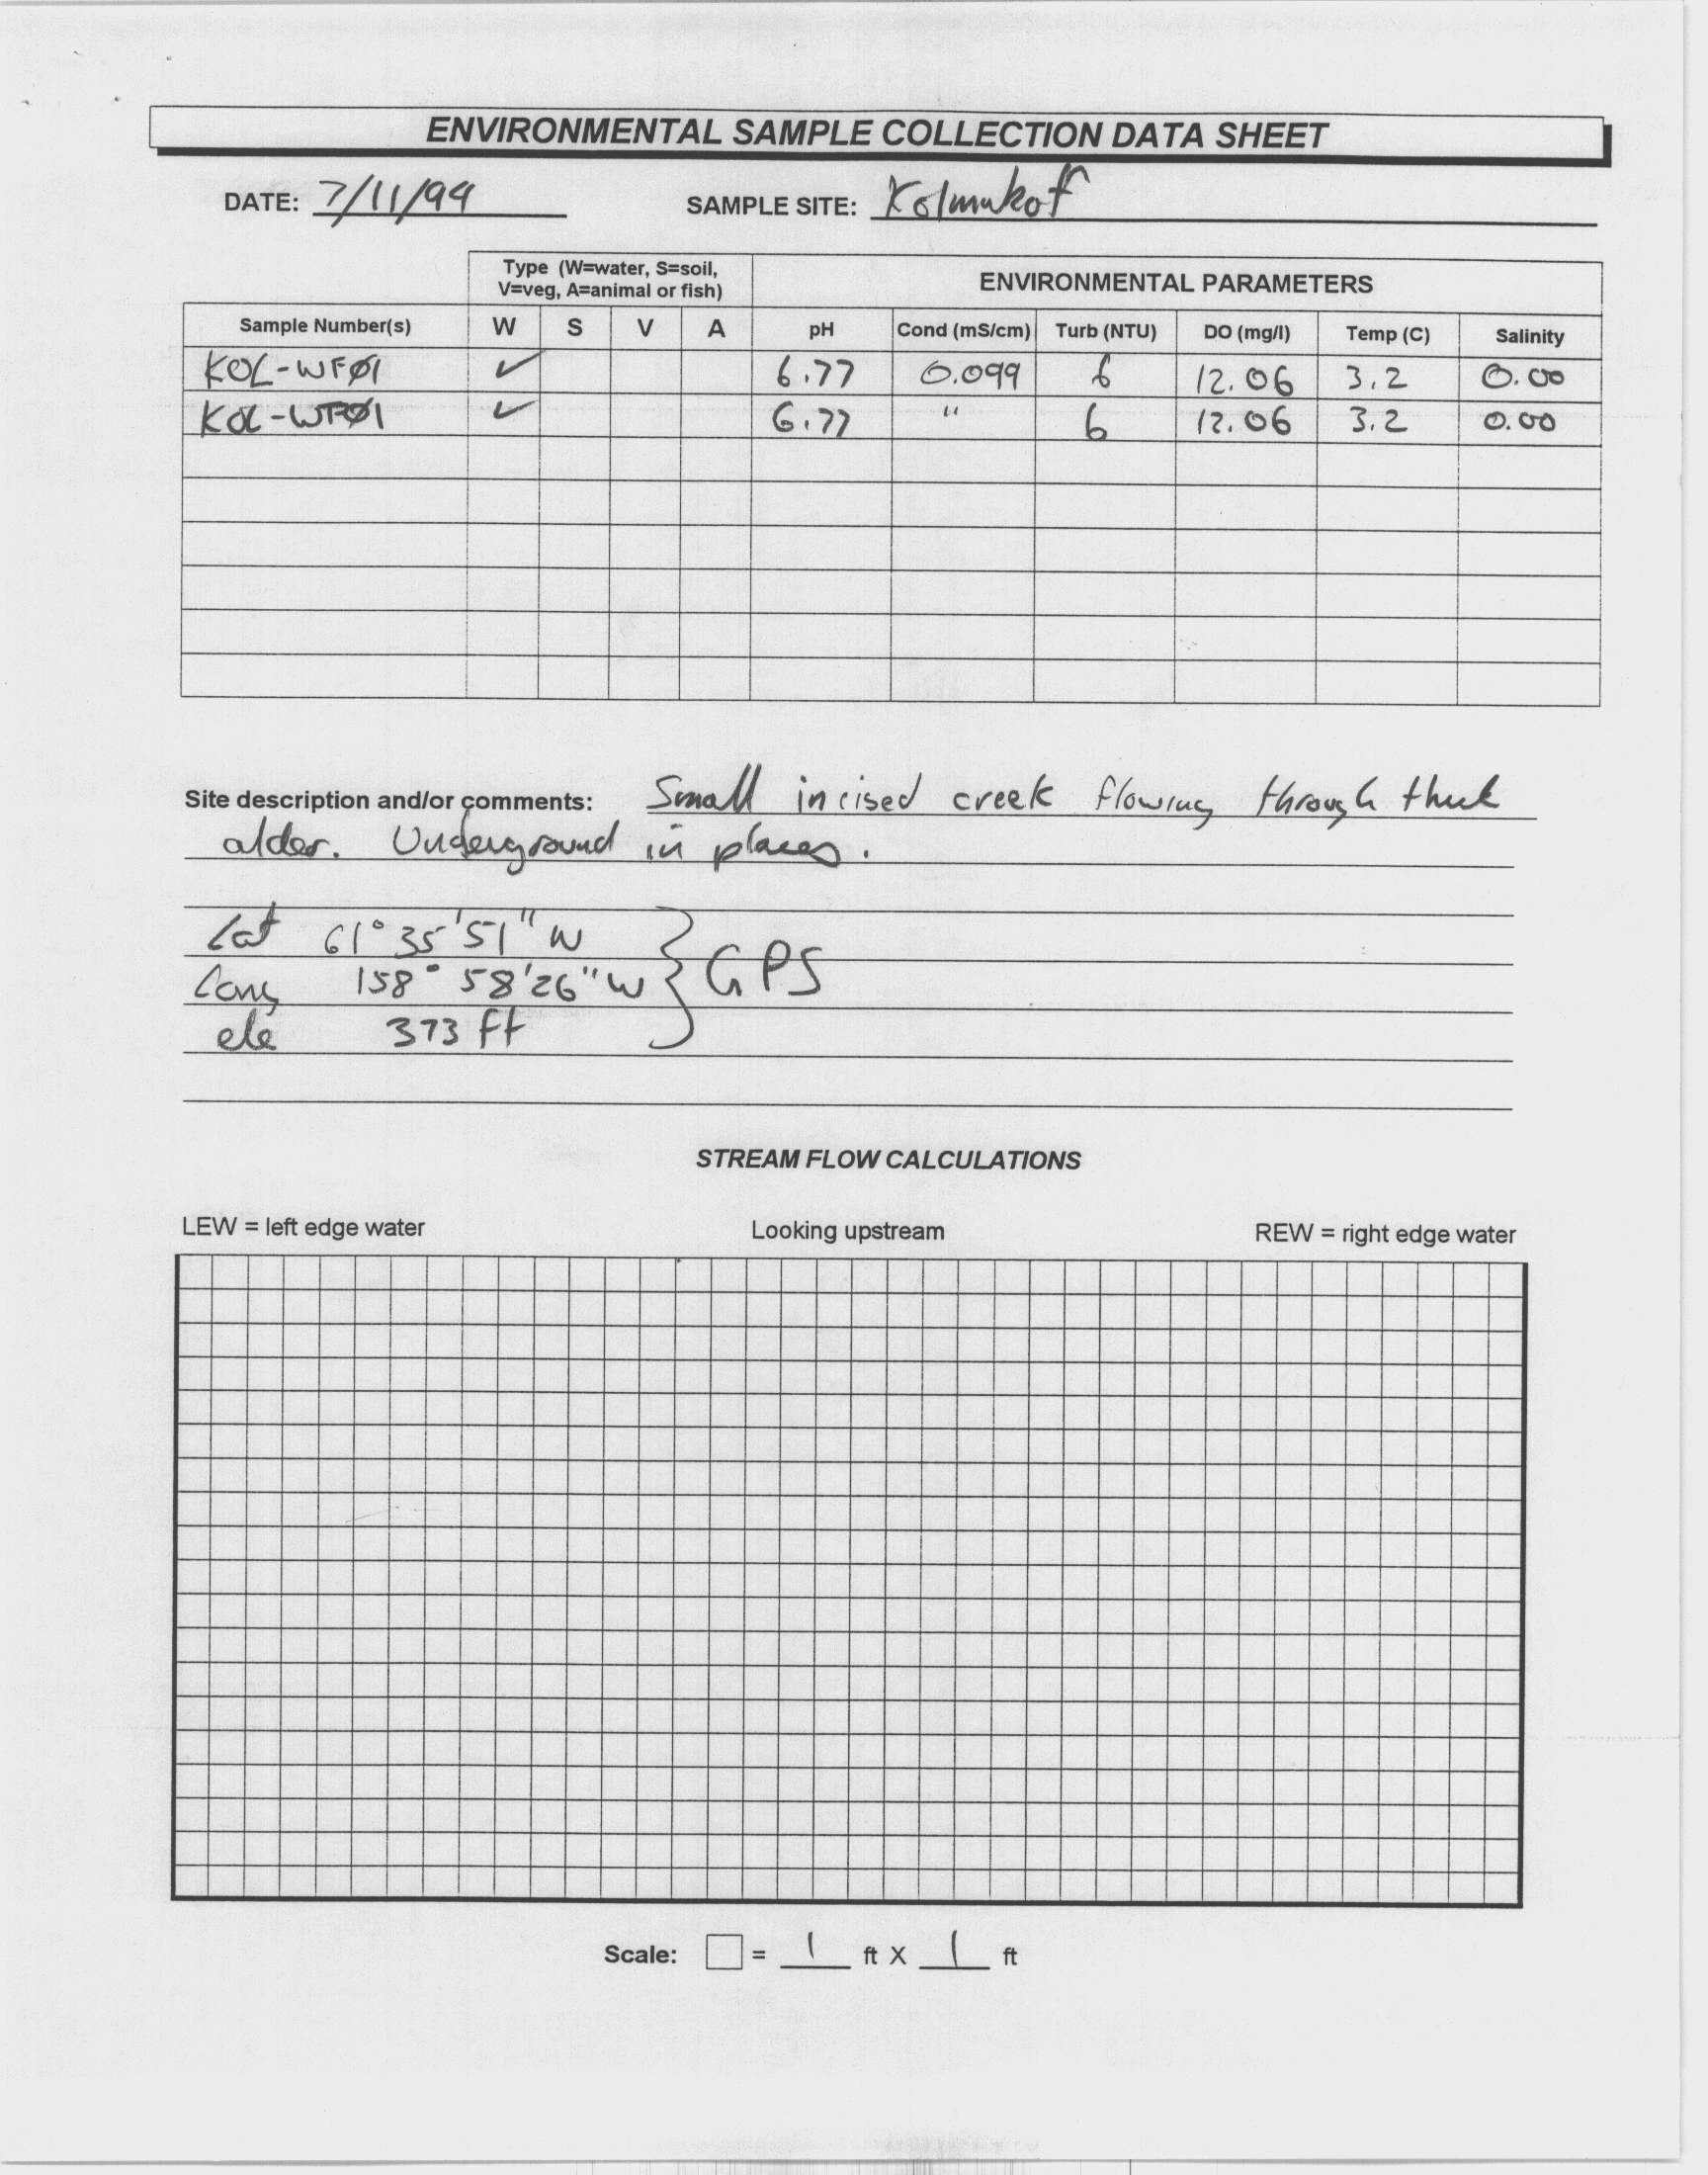 ENVIRONMENTAL SAMPLE COLLECTION DATA SHEET
DATE: 7/11/99 SAMPLE SITE: Kolmukof
Type (W=water, S=soil, V=veg, A=animal or fish) ENVIRONMENTAL PARAMETERS
Sample Number(s) W S V A pH Cond (mS/cm) Turb (NTU) DO (mg/l) Temp (C) Salinity
KOL-WFØ1 ✓ 6.77 0.099 6 12.06 3.2 0.00
KOL-WFØ1 ✓ 6.77 " 6 12.06 3.2 0.00
Site description and/or comments: Small incised creek flowing through thick
alder. Underground in places.
Lat 61° 35' 51" W
Long 158° 58' 26" W } GPS
ele 373 ft
STREAM FLOW CALCULATIONS
LEW = left edge water Looking upstream REW = right edge water
Scale: □ = 1 ft X 1 ft